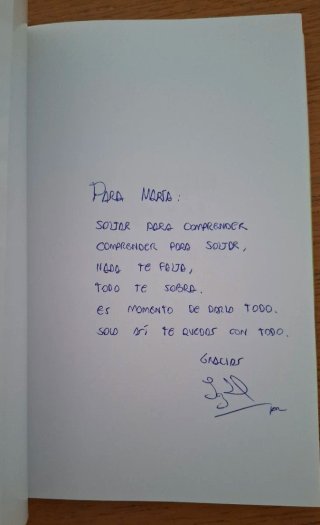 PARA MARTA:
SOLTAR PARA COMPRENDER
COMPRENDER PARA SOLTAR,
NADA TE FALTA,
TODO TE SOBRA.
ES MOMENTO DE DARLO TODO.
SOLO ASÍ TE QUEDAS CON TODO.
GRACIAS